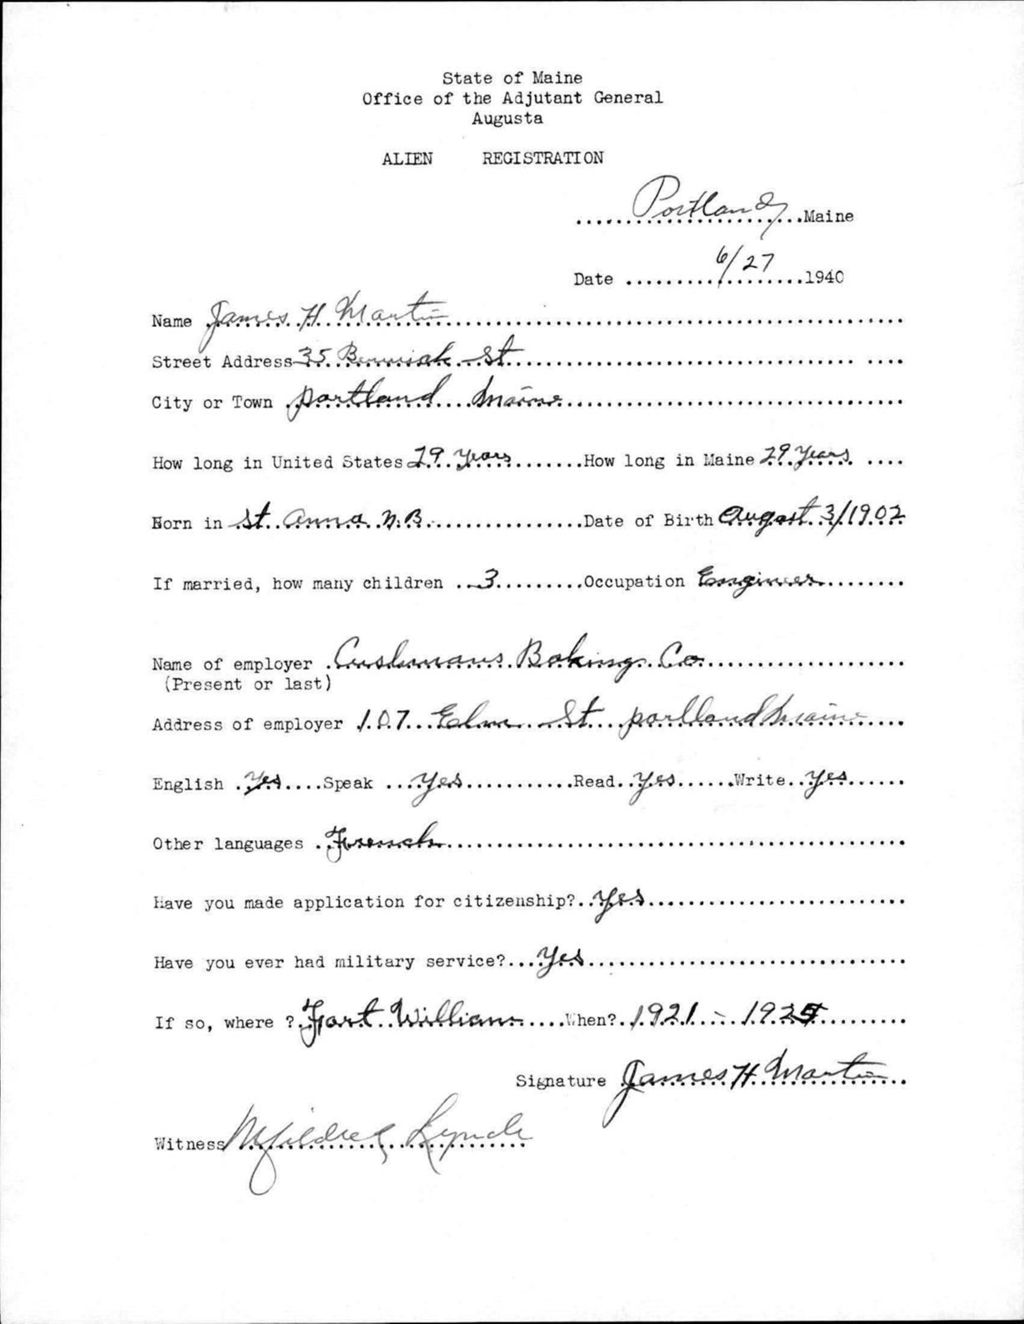 State of Maine
Office of the Adjutant General
Augusta
ALIEN REGISTRATION
Portland, Maine
Date 6/27 1940
Name James H Martin
Street Address 35 St
City or Town Portland Maine
How long in United States 29 Years How long in Maine 29 Years
Born in St. Anna N.B. Date of Birth August 3/1902
If married, how many children 3 Occupation Engineer
Name of employer Cushmans Baking Co
(Present or last)
Address of employer 107 Elm St portland Maine
English Yes Speak Yes Read Yes Write Yes
Other languages French
Have you made application for citizenship? Yes
Have you ever had military service? Yes
If so, where ? Fort Williams When? 1921 - 1925
Signature James H Martin
Witness Mildred Lynch